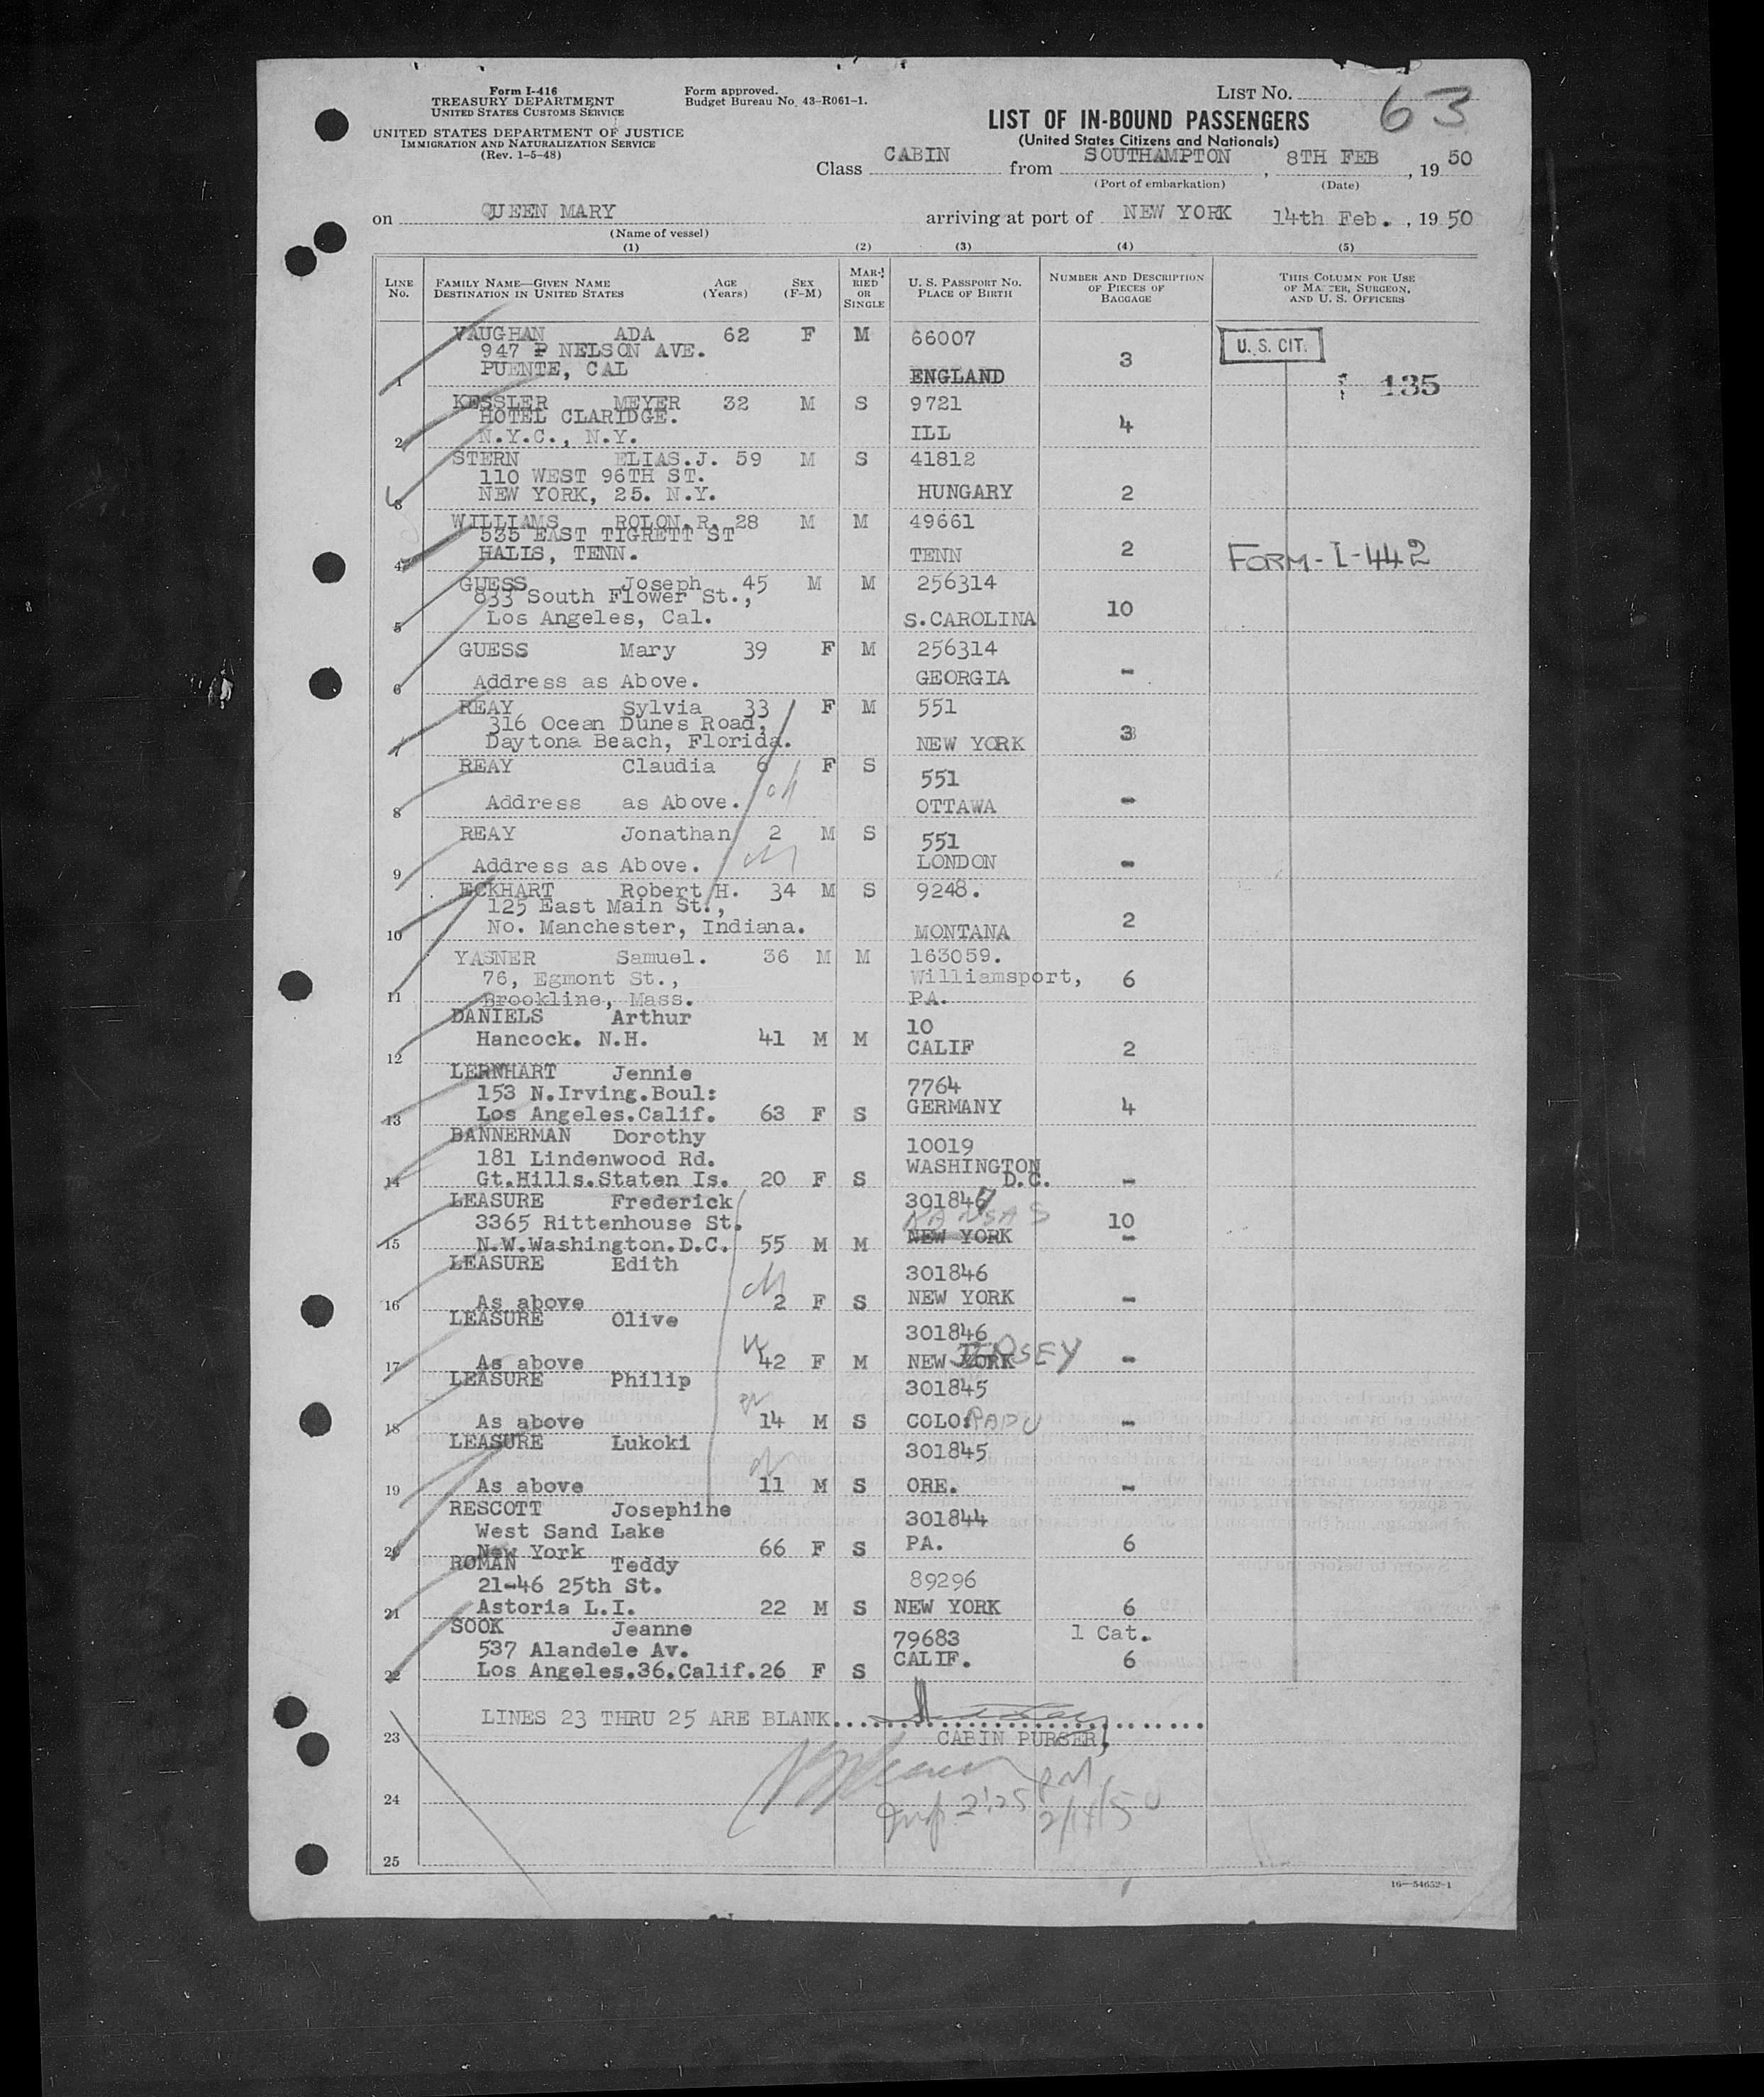 Form I-416
TREASURY DEPARTMENT
UNITED STATES CUSTOMS SERVICE
UNITED STATES DEPARTMENT OF JUSTICE
IMMIGRATION AND NATURALIZATION SERVICE
(Rev. 1-5-48)
Form approved.
Budget Bureau No. 43-R061-1.
LIST NO. 63
LIST OF IN-BOUND PASSENGERS
(United States Citizens and Nationals)
Class CABIN from SOUTHAMPTON, 8TH FEB, 1950
(Port of embarkation) (Date)
on QUEEN MARY arriving at port of NEW YORK 14th Feb., 1950
(Name of vessel)
(1) (2) (3) (4) (5)
LINE No. FAMILY NAME—GIVEN NAME DESTINATION IN UNITED STATES AGE (Years) SEX (F-M) MARRIED OR SINGLE U. S. PASSPORT NO. PLACE OF BIRTH NUMBER AND DESCRIPTION OF PIECES OF BAGGAGE THIS COLUMN FOR USE OF MASTER, SURGEON, AND U. S. OFFICERS
VAUGHAN ADA 62 F M 66007 U. S. CIT.
947 P NELSON AVE. 3
1 PUENTE, CAL ENGLAND 135
KESSLER MEYER 32 M S 9721
HOTEL CLARIDGE. 4
2 N.Y.C., N.Y. ILL
STERN ELIAS.J. 59 M S 41812
110 WEST 96TH ST.
3 NEW YORK, 25. N.Y. HUNGARY 2
WILLIAMS ROLON.R. 28 M M 49661
535 EAST TIGRETT ST
4 HALIS, TENN. TENN 2 FORM-I-442
GUESS Joseph 45 M M 256314
833 South Flower St., 10
5 Los Angeles, Cal. S.CAROLINA
GUESS Mary 39 F M 256314
6 Address as Above. GEORGIA -
REAY Sylvia 33 F M 551
316 Ocean Dunes Road,
7 Daytona Beach, Florida. NEW YORK 3
REAY Claudia 6 F S 551
8 Address as Above. OTTAWA -
REAY Jonathan 2 M S 551
9 Address as Above. LONDON -
ECKHART Robert H. 34 M S 9248.
125 East Main St.,
10 No. Manchester, Indiana. MONTANA 2
YASNER Samuel. 36 M M 163059.
76, Egmont St., Williamsport, 6
11 Brookline, Mass. PA.
DANIELS Arthur 10
12 Hancock. N.H. 41 M M CALIF 2
LERNHART Jennie
153 N.Irving.Boul: 7764
13 Los Angeles.Calif. 63 F S GERMANY 4
BANNERMAN Dorothy 10019
181 Lindenwood Rd. WASHINGTON
14 Gt.Hills.Staten Is. 20 F S D.C. -
LEASURE Frederick 301847
3365 Rittenhouse St. KANSAS 10
15 N.W.Washington.D.C. 55 M M NEW YORK -
LEASURE Edith 301846
16 As above 2 F S NEW YORK -
LEASURE Olive 301846
17 As above 42 F M NEW YORK JERSEY -
LEASURE Philip 301845
18 As above 14 M S COLO. RADO -
LEASURE Lukoki 301845
19 As above 11 M S ORE. -
RESCOTT Josephine 301844
West Sand Lake
20 New York 66 F S PA. 6
ROMAN Teddy
21-46 25th St. 89296
21 Astoria L.I. 22 M S NEW YORK 6
SOOK Jeanne 79683 1 Cat.
537 Alandele Av. CALIF.
22 Los Angeles.36.Calif. 26 F S 6
LINES 23 THRU 25 ARE BLANK
23 CABIN PURSER,
Insp. 2:25 PM
24 2/14/50
25
16—54652-1